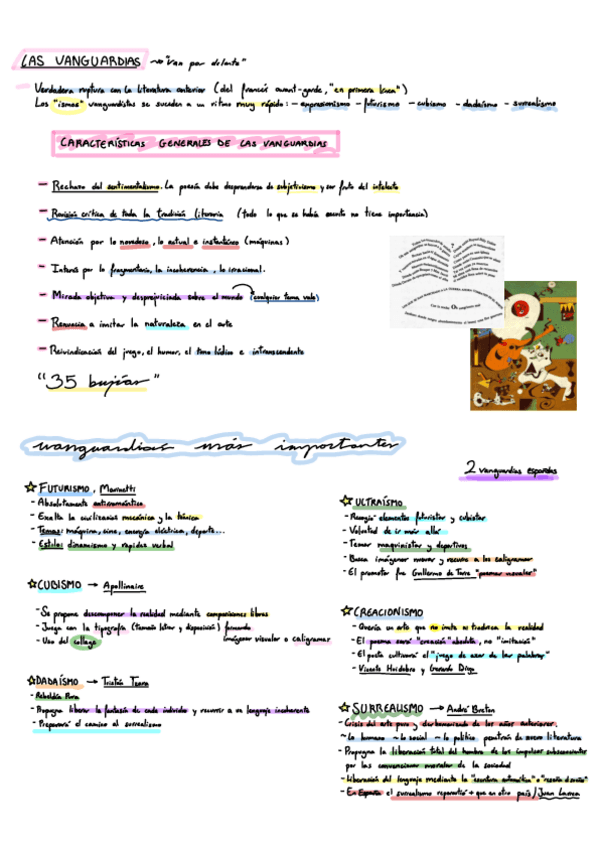 LAS VANGUARDIAS → "Van por delante"
Verdadera ruptura con la literatura anterior (del francés avant-garde, "en primera línea")
Los "ismos" vanguardistas se suceden a un ritmo muy rápido: - expresionismo - futurismo - cubismo - dadaísmo - surrealismo
CARACTERÍSTICAS GENERALES DE LAS VANGUARDIAS
- Rechazo del sentimentalismo. La poesía debe desprenderse de subjetivismo y ser fruto del intelecto
- Revisión crítica de toda la tradición literaria (todo lo que se había escrito no tiene importancia)
- Atención por lo novedoso, lo actual e instantáneo (máquinas)
- Interés por lo fragmentario, la incoherencia, lo irracional.
- Mirada objetiva y desprejuiciada sobre el mundo (cualquier tema vale)
- Renuncia a imitar la naturaleza en el arte
- Reivindicación del juego, el humor, el tono lúdico e intranscendente
"35 bujías"
vanguardias más importantes
2 vanguardias españolas
☆ FUTURISMO, Marinetti
- Absolutamente antirromántico
- Exalta la civilización mecánica y la técnica
- Temas: máquina, cine, energía eléctrica, deporte...
- Estilo: dinamismo y rapidez verbal
☆ CUBISMO → Apollinaire
- Se propone descomponer la realidad mediante composiciones libres
- Juega con la tipografía (tamaño letras y disposición) formando
imágenes visuales o caligramas
- Uso del collage
☆ DADAÍSMO → Tristán Tzara
- Rebeldía Pura
- Propugna liberar la fantasía de cada individuo y recurrir a un lenguaje incoherente
- Preparará el camino al surrealismo
☆ ULTRAÍSMO
- Recogió elementos futuristas y cubistas
- Voluntad de ir más allá
- Temas maquinistas y deportivos
- Busca imágenes nuevas y recurre a los caligramas
- El promotor fue Guillermo de Torre "poemas novales"
☆ CREACIONISMO
- Quería un arte que no imita ni traduzca la realidad
- El poema será "creación" absoluta, no "imitación"
- El poeta cultivará el "juego de azar de las palabras"
- Vicente Huidobro y Gerardo Diego
☆ SURREALISMO → André Breton
- Crisis del arte puro y
~ Lo humano ~ lo social ~ lo político penetran de nuevo literatura
- Propugna la liberación total del hombre de los impulsos subconscientes
por las convenciones morales de la sociedad
- Liberación del lenguaje mediante la "escritura automática" o
- En España el surrealismo repercutió + que en otro país / Juan Larrea